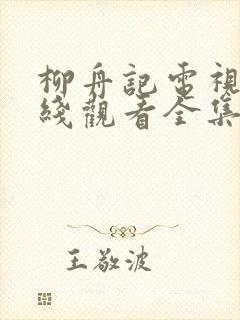 柳舟記電視
綫觀看全集
王敬波